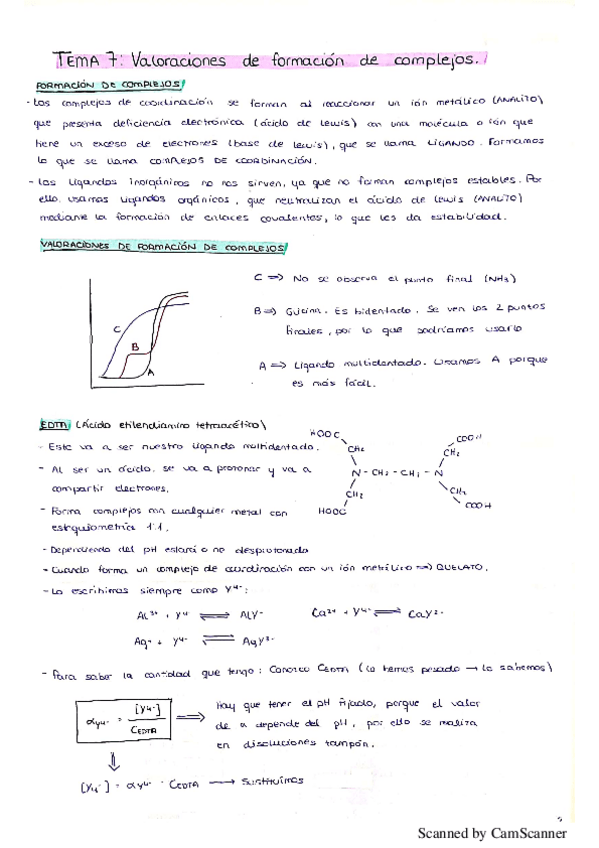 TEMA 7: Valoraciones de formación de complejos.
FORMACIÓN DE COMPLEJOS
- Los complejos de coordinación se forman al reaccionar un ión metálico (ANALITO)
que presenta deficiencia electrónica (ácido de Lewis) con una molécula o ión que
tiene un exceso de electrones (base de Lewis), que se llama LIGANDO. Formamos
lo que se llama COMPLEJOS DE COORDINACIÓN.
- Los Ligandos inorgánicos no nos sirven, ya que no forman complejos estables. Por
ello, usamos ligandos orgánicos, que neutralizan el ácido de Lewis (ANALITO)
mediante la formación de enlaces covalentes, lo que les da estabilidad.
VALORACIONES DE FORMACIÓN DE COMPLEJOS
C => No se observa el punto final (NH3)
B => Glicina. Es bidentado. Se ven los 2 puntos
finales, por lo que podríamos usarlo
A => Ligando multidentado. Usamos A porque
es más fácil.
C
B
A
EDTA (Ácido etilendiamino tetraacético)
- Este va a ser nuestro ligando multidentado.
- Al ser un ácido, se va a protonar y va a
compartir electrones.
- Forma complejos con cualquier metal con
estequiometría 1:1.
HOOC COOH
CH2 CH2
N - CH2 - CH2 - N
CH2 CH2
HOOC COOH
- Dependiendo del pH estará o no desprotonado
- Cuando forma un complejo de coordinación con un ión metálico => QUELATO.
- Lo escribimos siempre como Y4-:
Al3+ + Y4- ⇌ AlY- Ca2+ + Y4- ⇌ CaY2-
Ag+ + Y4- ⇌ AgY3-
- Para saber la cantidad que tengo: Conozco CEDTA (lo hemos pesado → lo sabemos)
αY4- = [Y4-] / CEDTA => Hay que tener el pH fijado, porque el valor
de α depende del pH, por ello se realiza
en disoluciones tampón.
[Y4-] = αY4- · CEDTA → Sustituimos
Scanned by CamScanner